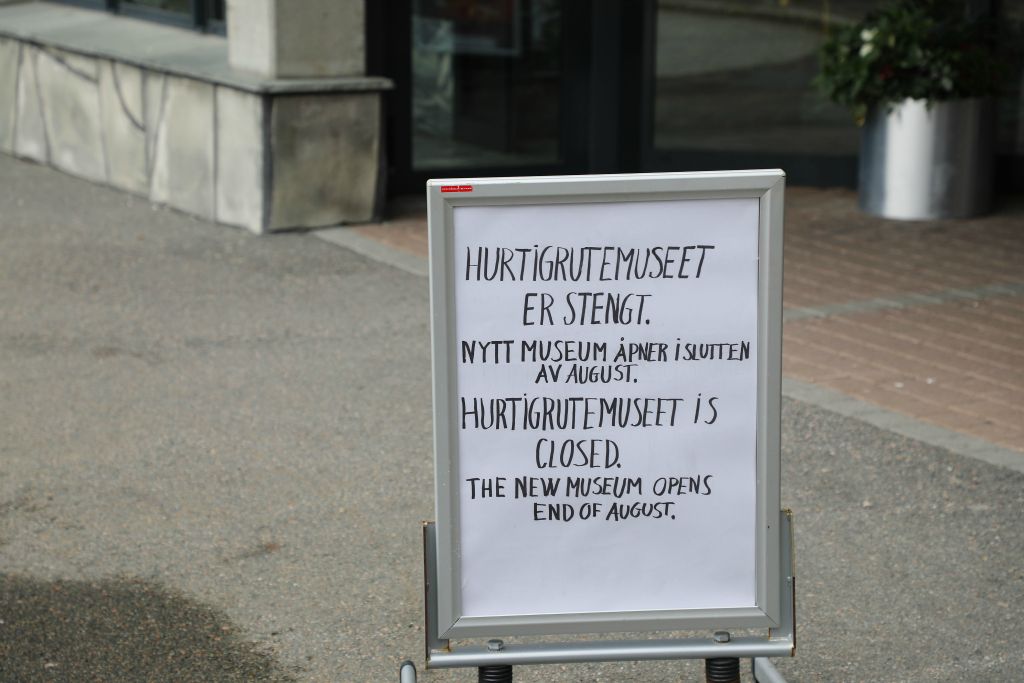 HURTIGRUTEMUSEET
ER STENGT.
NYTT MUSEUM ÅPNER I SLUTTEN
AV AUGUST.
HURTIGRUTEMUSEET IS
CLOSED.
THE NEW MUSEUM OPENS
END OF AUGUST.